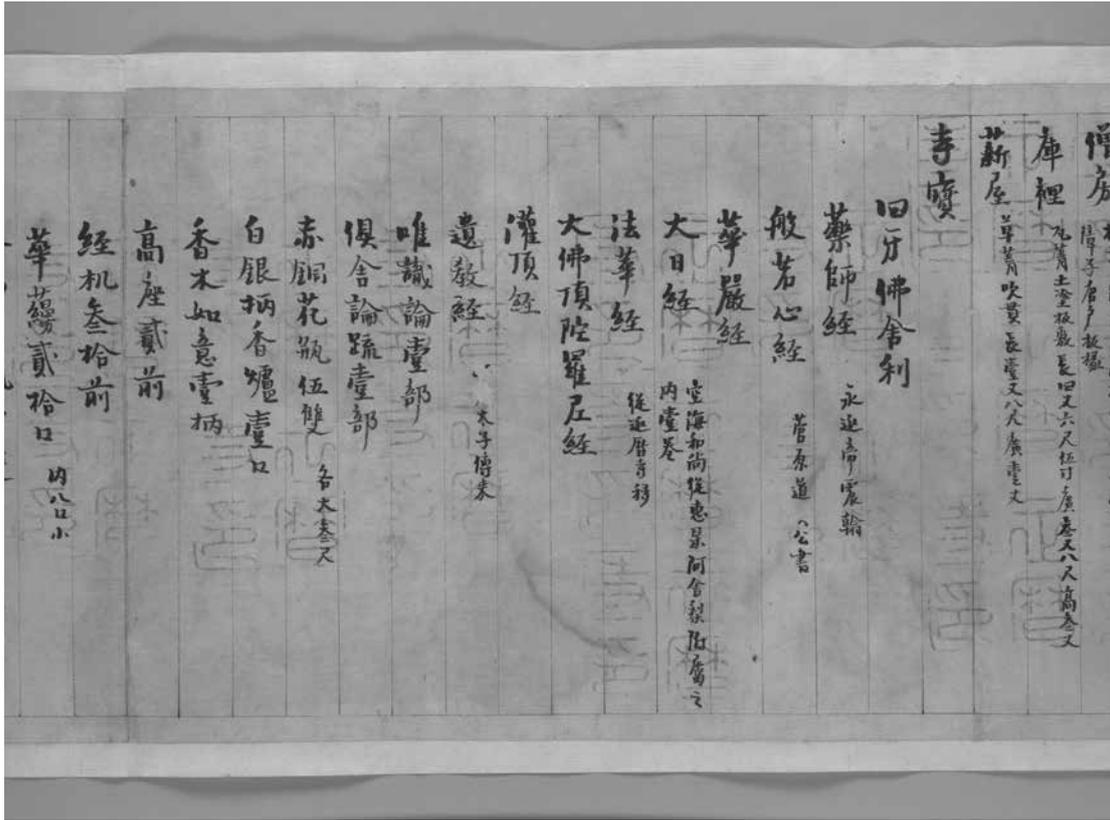 僧房
障子唐戸板椽
庫裡 瓦葺土塗板敷長四丈六尺伍寸廣叁丈八尺高叁丈
薪屋 草葺吹貫長壹丈八尺廣壹丈
寺寳
四牙佛舎利
薬師経 永延帝震翰
般若心経 菅原道 公書
華嚴経
大日経 空海和尚従恵杲阿舎梨附属之
内壹巻
法華経 従延暦寺移
大佛頂陀羅尼経
灌頂経
遺教経 太子傳来
唯識論壹部
倶舎論䟽壹部
赤銅花瓶伍雙 各大叁尺
白銀柄香爐壹口
香木如意壹柄
高座貳前
経机叁拾前
華鬘貳拾口 内八口小